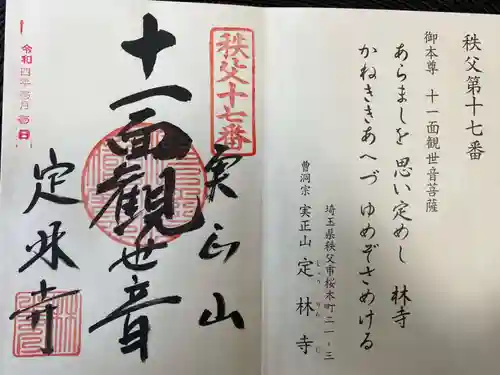 秩父第十七番
御本尊 十一面観世音菩薩
あらましを 思い定めし 林寺
かねききあへづ ゆめぞさめける
埼玉県秩父市桜木町二一・三
曹洞宗 実正山 定林寺
じょうりんじ
秩父十七番
実正山
十一面観世音
定林寺
令和四年 月 日